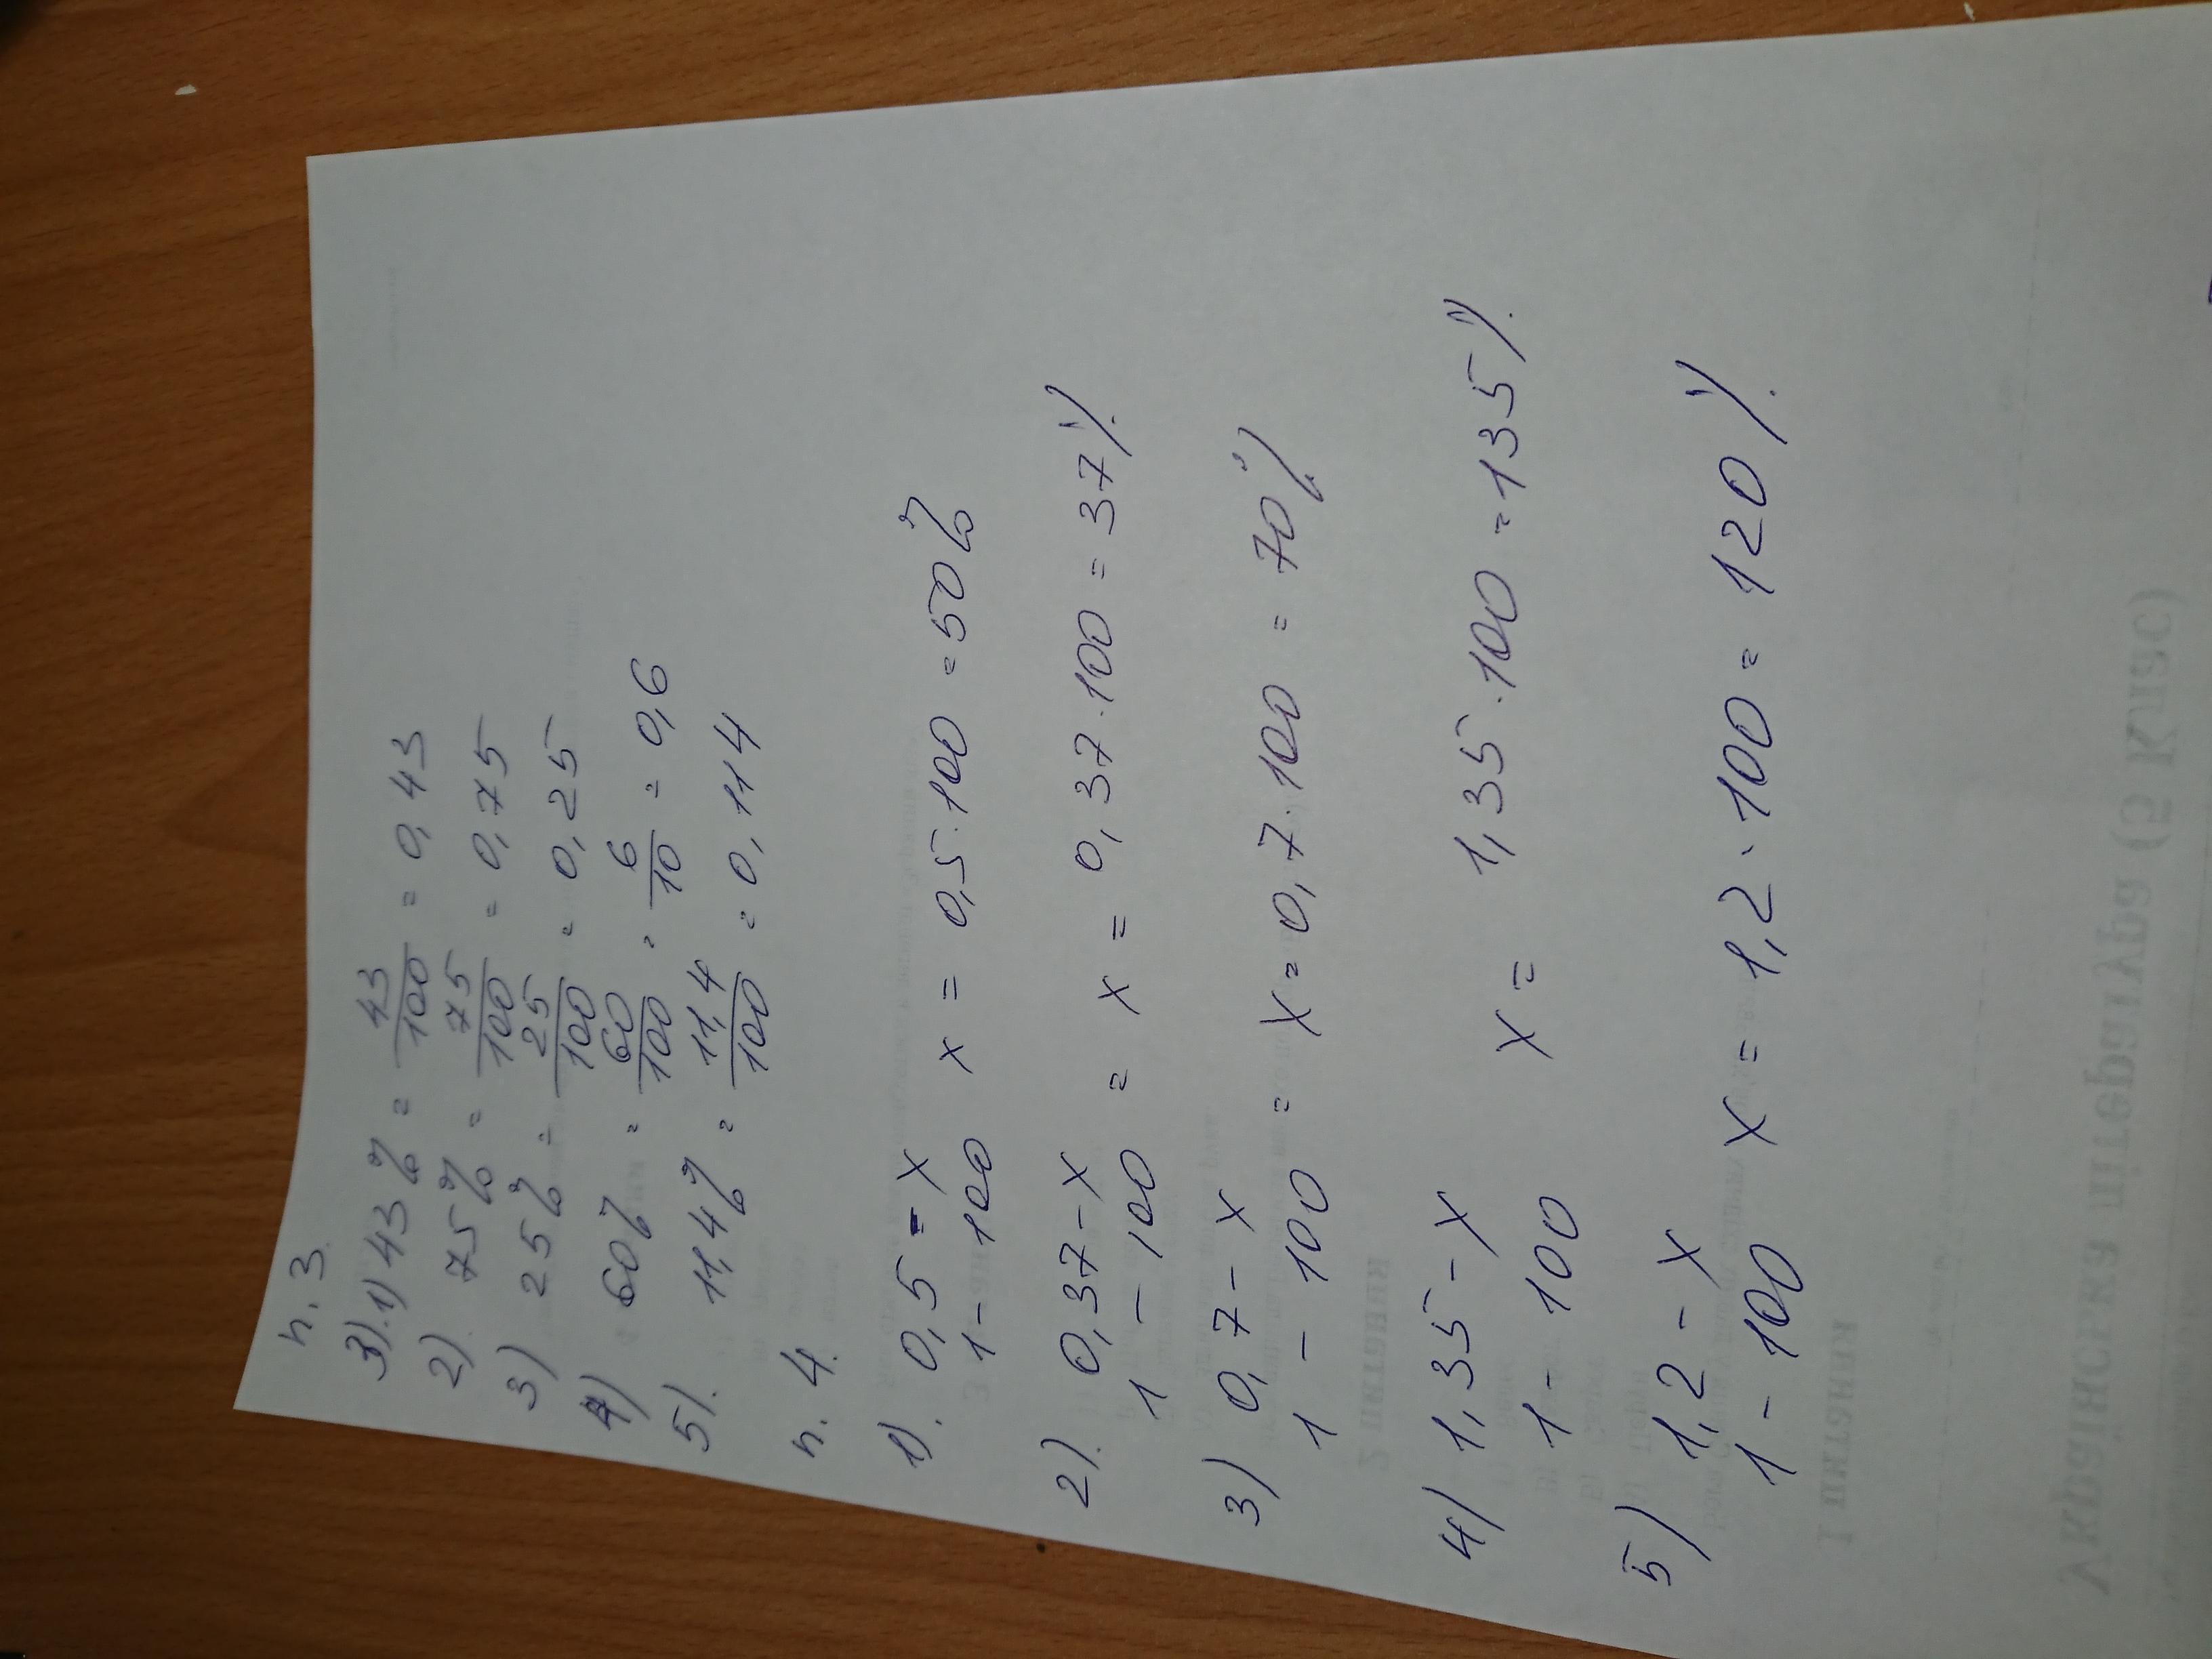 n. 3
3). 1) 43% = 43/100 = 0,43
2) 75% = 75/100 = 0,75
3) 25% = 25/100 = 0,25
4) 60% = 60/100 = 6/10 = 0,6
5). 11,4% = 11,4/100 = 0,114
n. 4.
1). 0,5 - x
1 - 100 x = 0,5 · 100 = 50%
2). 0,37 - x
1 - 100 = x = 0,37 · 100 = 37%
3) 0,7 - x
1 - 100 = x = 0,7 · 100 = 70%
4) 1,35 - x
1 - 100 x = 1,35 · 100 = 135%
5) 1,2 - x
1 - 100 x = 1,2 · 100 = 120%
1 питання
2 питання
Українська література (5 клас)